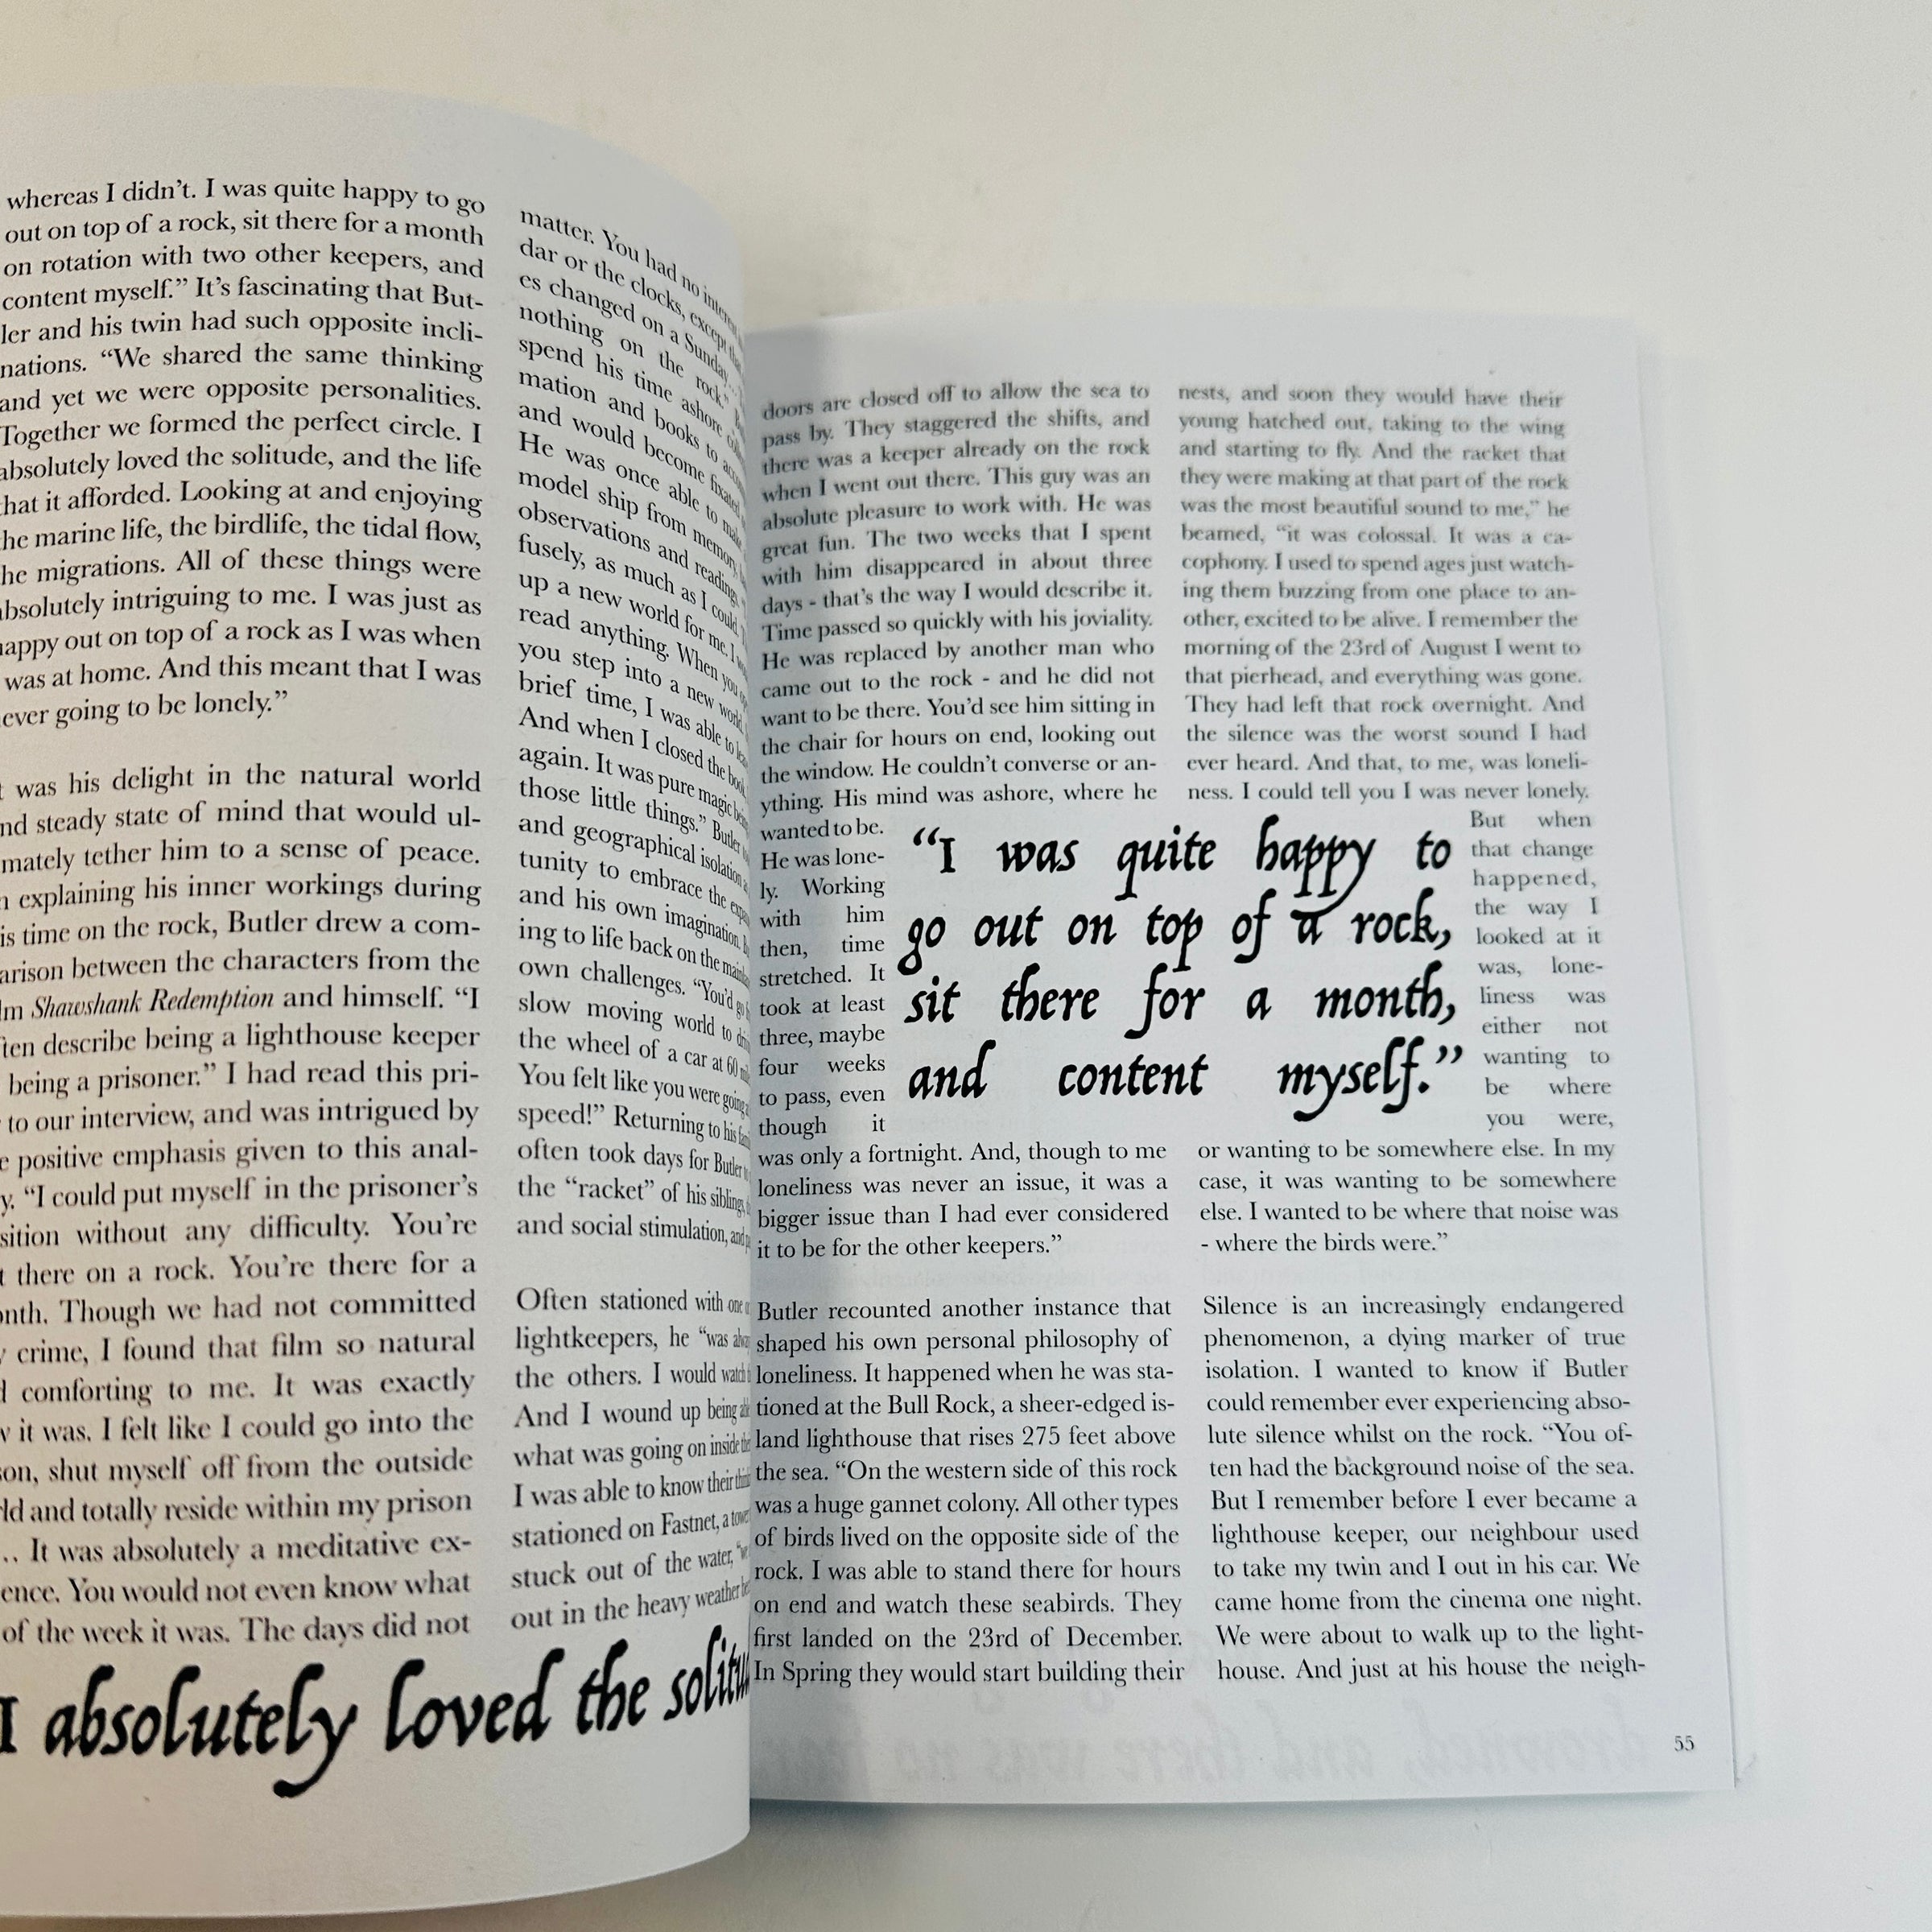 whereas I didn’t. I was quite happy to go
out on top of a rock, sit there for a month
on rotation with two other keepers, and
content myself.” It’s fascinating that But-
ler and his twin had such opposite incli-
nations. “We shared the same thinking
and yet we were opposite personalities.
Together we formed the perfect circle. I
absolutely loved the solitude, and the life
that it afforded. Looking at and enjoying
the marine life, the birdlife, the tidal flow,
the migrations. All of these things were
absolutely intriguing to me. I was just as
happy out on top of a rock as I was when
was at home. And this meant that I was
never going to be lonely.”
was his delight in the natural world
and steady state of mind that would ul-
timately tether him to a sense of peace.
explaining his inner workings during
his time on the rock, Butler drew a com-
parison between the characters from the
film Shawshank Redemption and himself. “I
often describe being a lighthouse keeper
being a prisoner.” I had read this pri-
to our interview, and was intrigued by
positive emphasis given to this anal-
“I could put myself in the prisoner’s
position without any difficulty. You’re
there on a rock. You’re there for a
month. Though we had not committed
crime, I found that film so natural
comforting to me. It was exactly
it was. I felt like I could go into the
shut myself off from the outside
and totally reside within my prison
... It was absolutely a meditative ex-
You would not even know what
of the week it was. The days did not
I absolutely loved the
matter. You had no
dar or the clocks, except
es changed on a Sunday
nothing on the rock.”
spend his time ashore
mation and books to
and would become fixated
He was once able to make
model ship from memory,
observations and reading.
fusely, as much as I could.
up a new world for me. I
read anything. When you
you step into a new world
brief time, I was able to
And when I closed the book
again. It was pure magic
those little things.” Butler
and geographical isolation
tunity to embrace the
and his own imagination,
ing to life back on the
own challenges. “You’d go
slow moving world to
the wheel of a car at 60
You felt like you were going
speed!” Returning to his
often took days for Butler
the “racket” of his siblings,
and social stimulation, and
Often stationed with one
lightkeepers, he “was
the others. I would watch
And I wound up being
what was going on inside
I was able to know their
stationed on Fastnet, a
stuck out of the water,
out in the heavy weather
doors are closed off to allow the sea to
pass by. They staggered the shifts, and
there was a keeper already on the rock
when I went out there. This guy was an
absolute pleasure to work with. He was
great fun. The two weeks that I spent
with him disappeared in about three
days - that’s the way I would describe it.
Time passed so quickly with his joviality.
He was replaced by another man who
came out to the rock - and he did not
want to be there. You’d see him sitting in
the chair for hours on end, looking out
the window. He couldn’t converse or an-
ything. His mind was ashore, where he
wanted to be.
He was lone-
ly. Working
with him
then, time
stretched. It
took at least
three, maybe
four weeks
to pass, even
though it
was only a fortnight. And, though to me
loneliness was never an issue, it was a
bigger issue than I had ever considered
it to be for the other keepers.”
Butler recounted another instance that
shaped his own personal philosophy of
loneliness. It happened when he was sta-
tioned at the Bull Rock, a sheer-edged is-
land lighthouse that rises 275 feet above
the sea. “On the western side of this rock
was a huge gannet colony. All other types
of birds lived on the opposite side of the
rock. I was able to stand there for hours
on end and watch these seabirds. They
first landed on the 23rd of December.
In Spring they would start building their
“I was quite happy to
go out on top of a rock,
sit there for a month,
and content myself.”
nests, and soon they would have their
young hatched out, taking to the wing
and starting to fly. And the racket that
they were making at that part of the rock
was the most beautiful sound to me,” he
beamed, “it was colossal. It was a ca-
cophony. I used to spend ages just watch-
ing them buzzing from one place to an-
other, excited to be alive. I remember the
morning of the 23rd of August I went to
that pierhead, and everything was gone.
They had left that rock overnight. And
the silence was the worst sound I had
ever heard. And that, to me, was loneli-
ness. I could tell you I was never lonely.
But when
that change
happened,
the way I
looked at it
was, lone-
liness was
either not
wanting to
be where
you were,
or wanting to be somewhere else. In my
case, it was wanting to be somewhere
else. I wanted to be where that noise was
- where the birds were.”
Silence is an increasingly endangered
phenomenon, a dying marker of true
isolation. I wanted to know if Butler
could remember ever experiencing abso-
lute silence whilst on the rock. “You of-
ten had the background noise of the sea.
But I remember before I ever became a
lighthouse keeper, our neighbour used
to take my twin and I out in his car. We
came home from the cinema one night.
We were about to walk up to the light-
house. And just at his house the neigh-
55